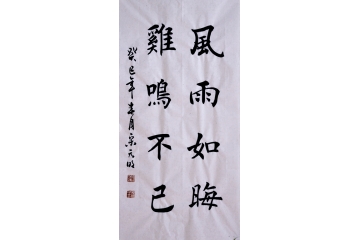 風雨如晦
雞鳴不已
癸巳年春月宋元明